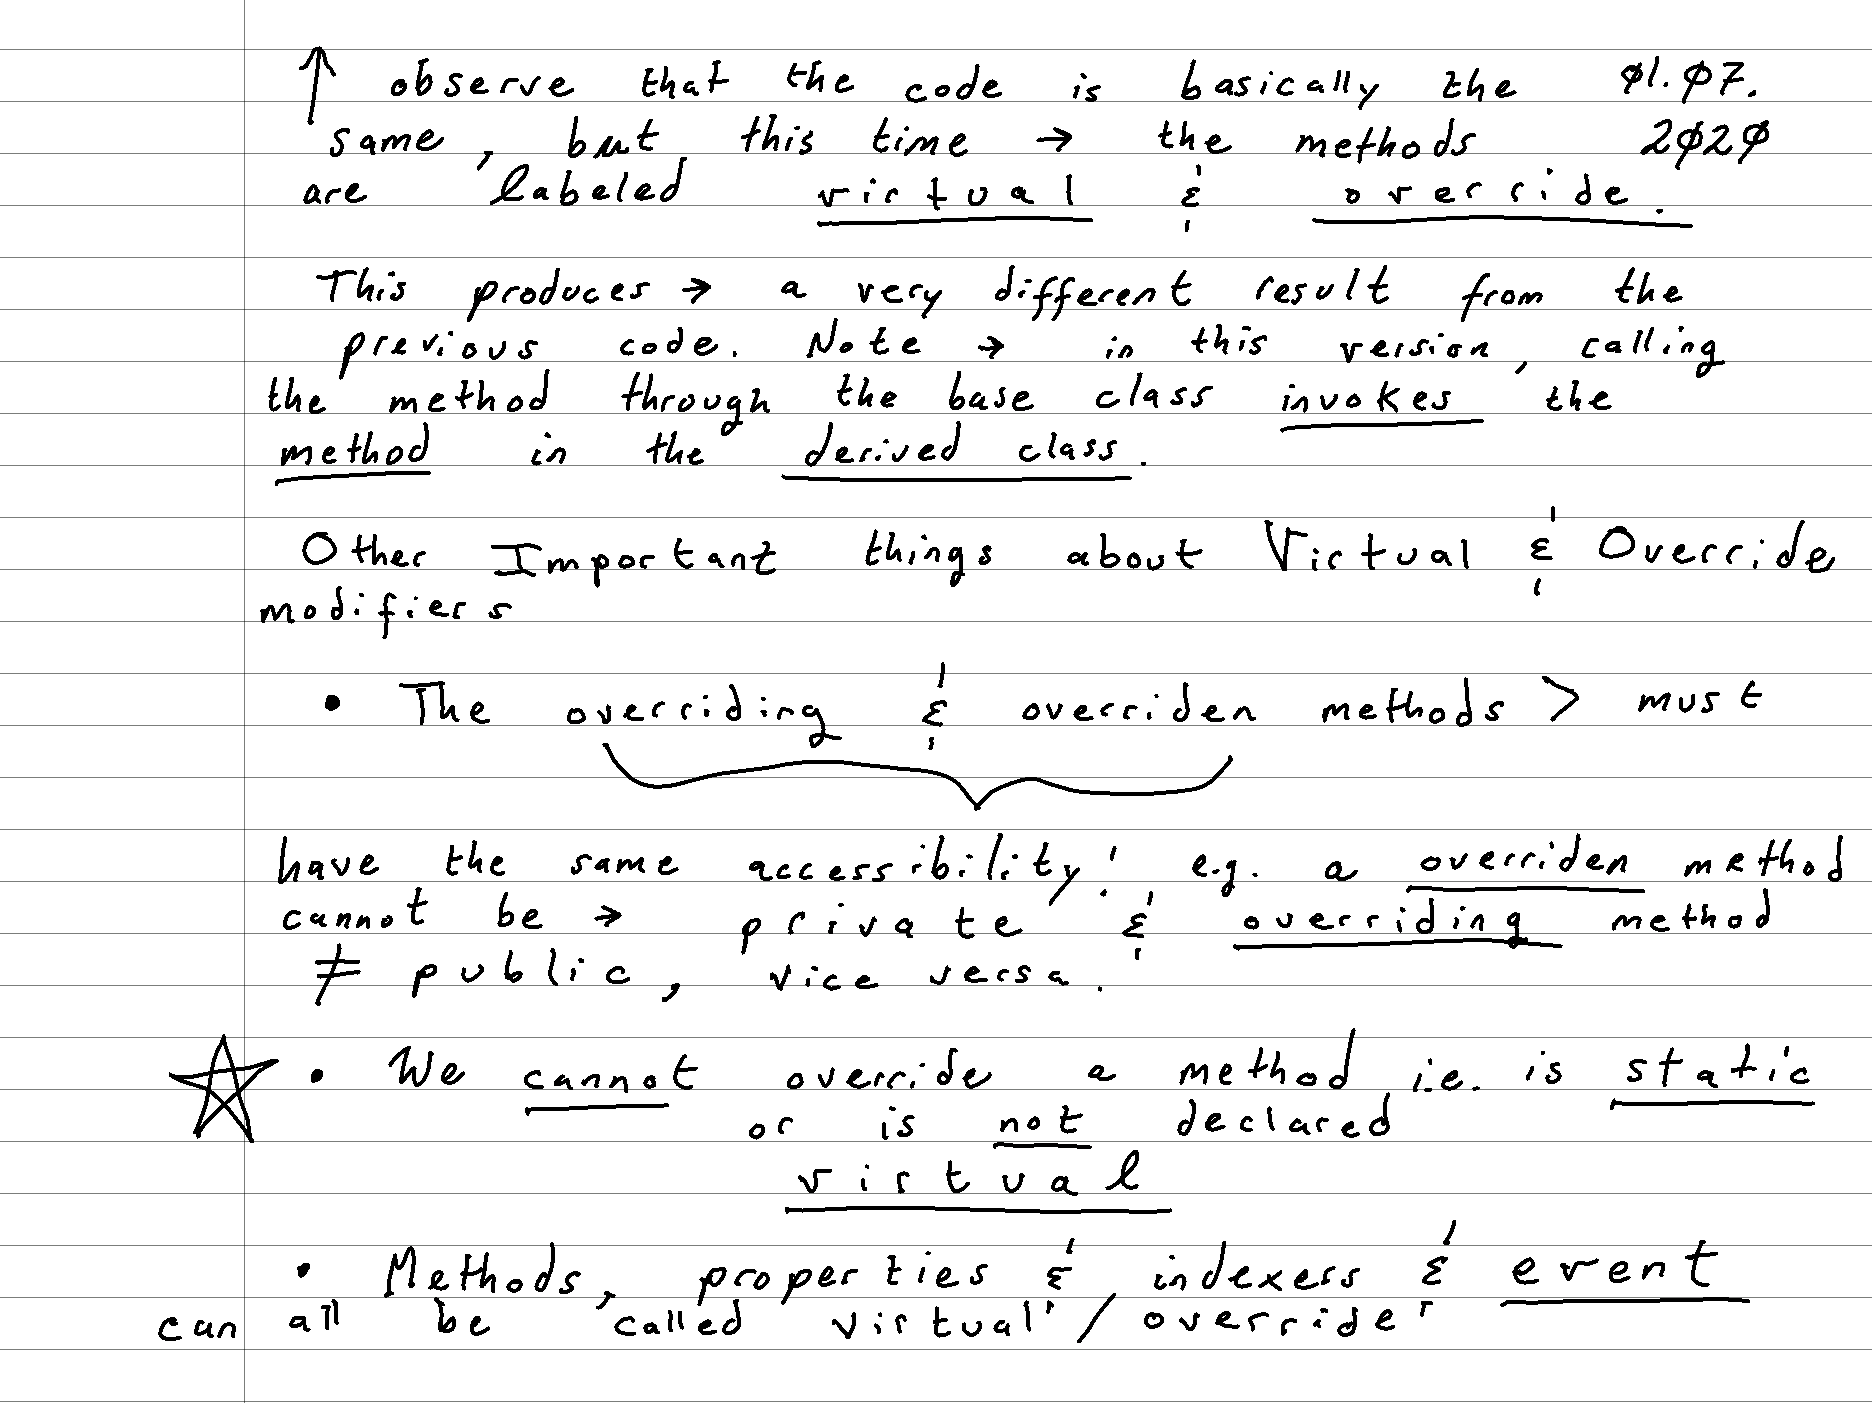 ↑ observe that the code is basically the 01.07.
same, but this time → the methods 2020
are labeled virtual & override.
This produces → a very different result from the
previous code. Note → in this version, calling
the method through the base class invokes the
method in the derived class.
Other Important things about Virtual & Override
modifiers
• The overriding & overriden methods > must
have the same accessibility! e.g. a overriden method
cannot be → private & overriding method
≠ public, vice versa.
☆ • We cannot override a method i.e. is static
or is not declared
virtual
• Methods, properties & indexers & event
can all be called virtual'/override'